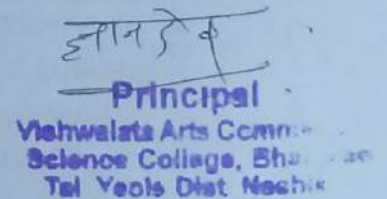 ज्ञानदेव
Principal
Vishwalata Arts Comm
Science College, Bha
Tal Yeola Dist Nashik